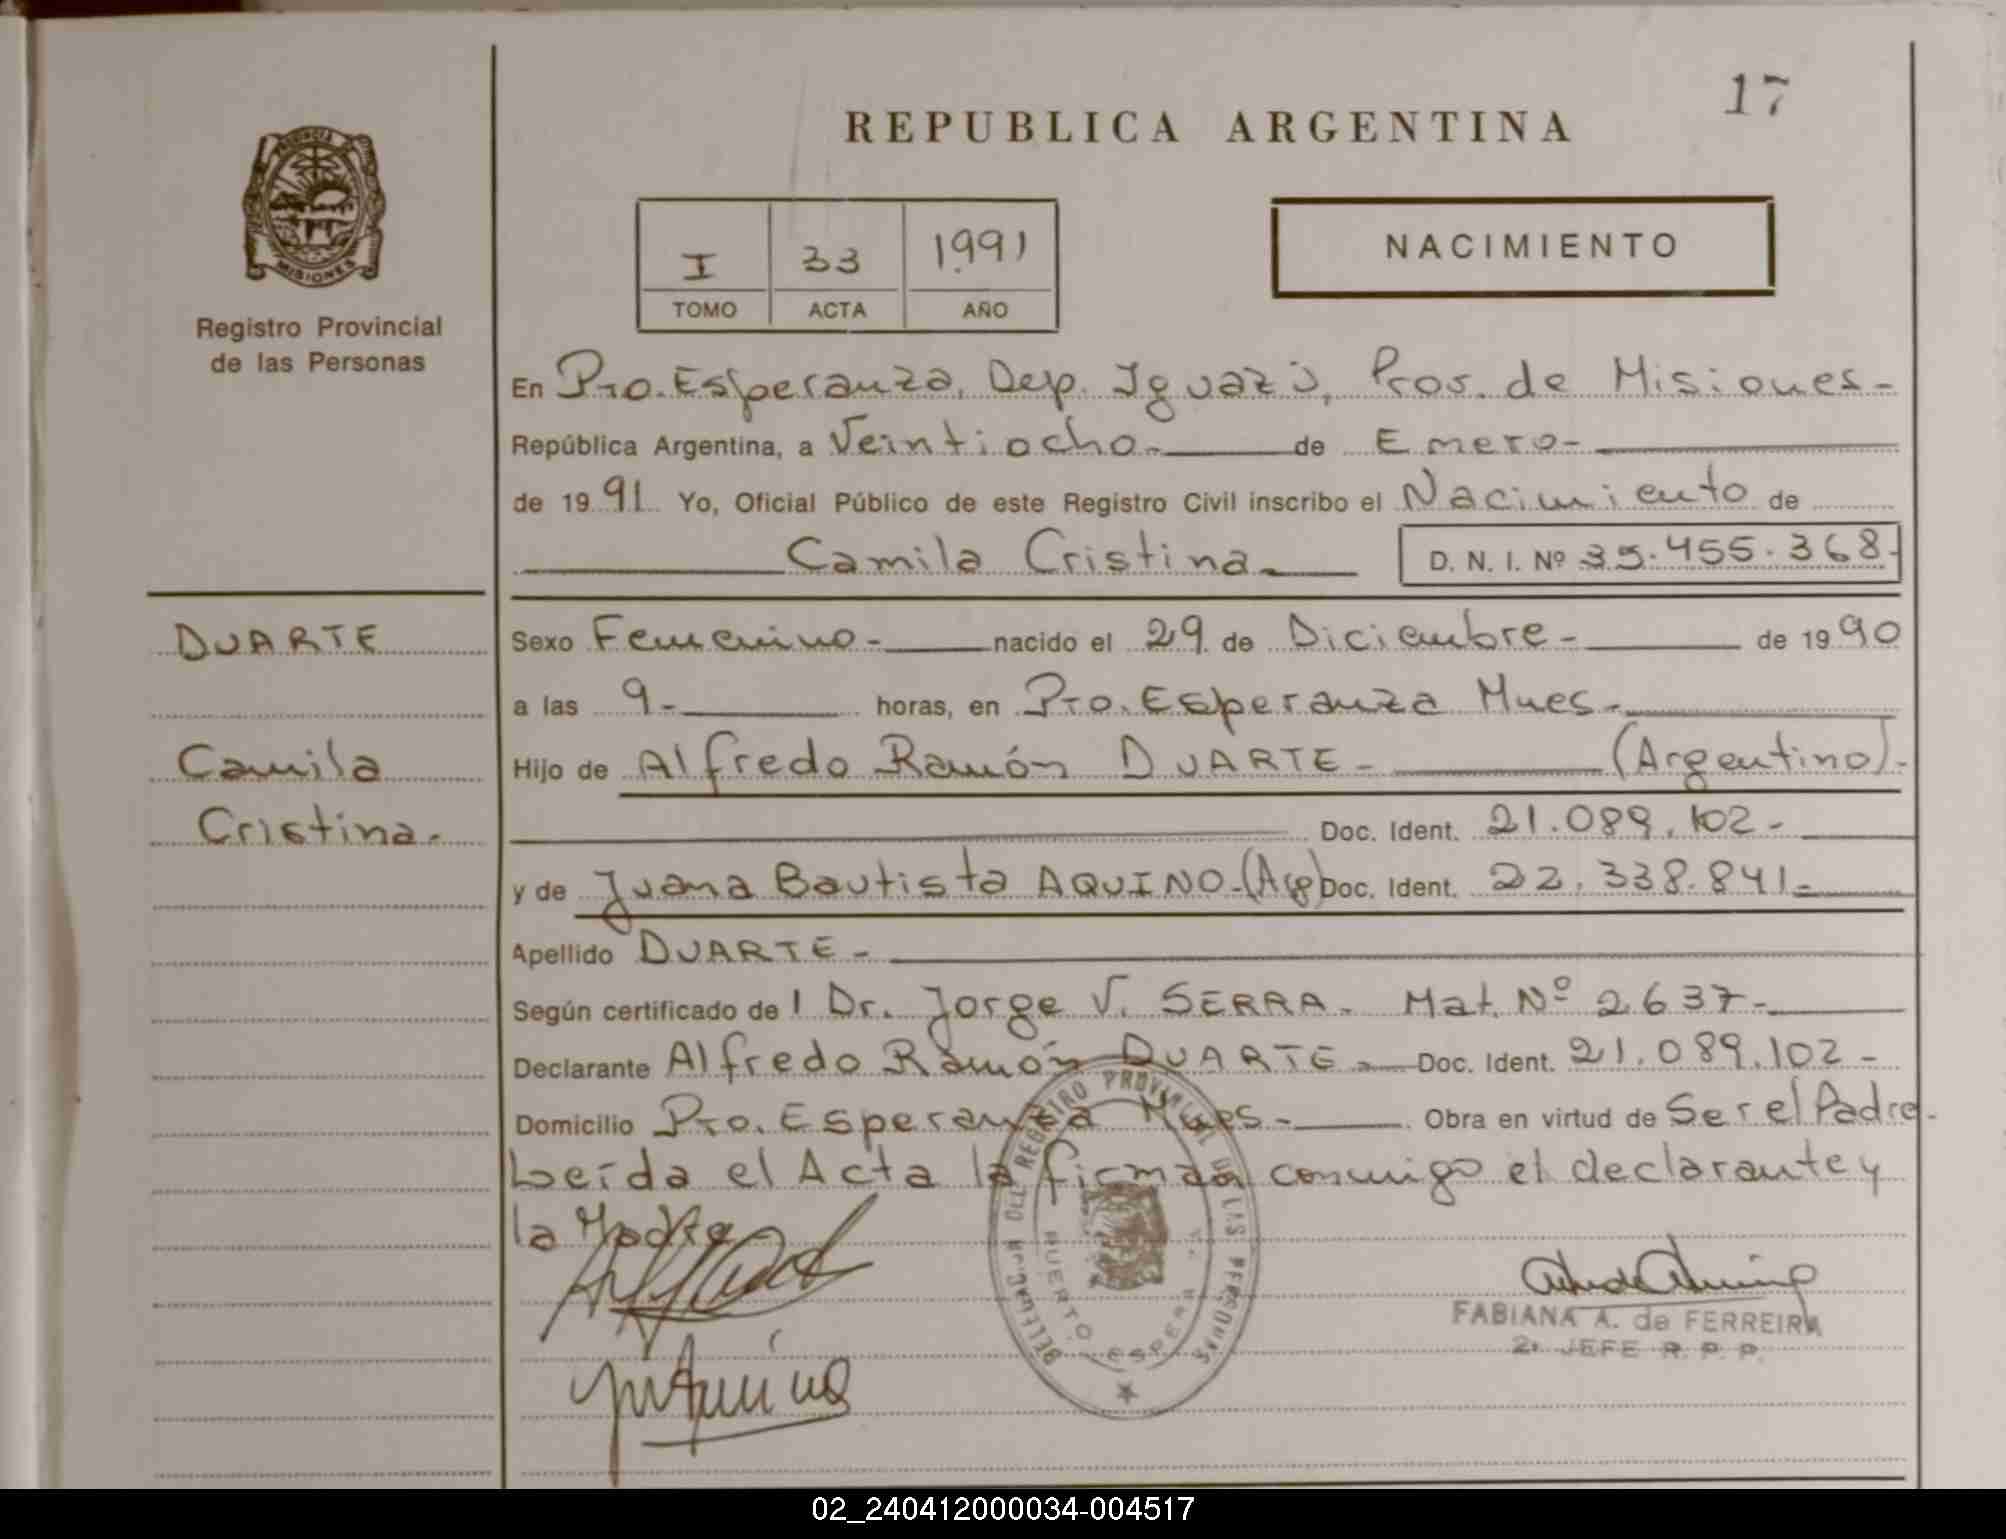 17
REPUBLICA ARGENTINA
PROVINCIA
MISIONES
Registro Provincial
de las Personas
I 33 1991
TOMO ACTA AÑO
NACIMIENTO
En Pto. Esperanza, Dep. Iguazú, Prov. de Misiones-
República Argentina, a Veintiocho- de Enero-
de 1991 Yo, Oficial Público de este Registro Civil inscribo el Nacimiento de
Camila Cristina- D. N. I. Nº 35.455.368-
DUARTE
Camila
Cristina-
Sexo Femenino- nacido el 29 de Diciembre- de 1990
a las 9- horas, en Pto. Esperanza Mnes-
Hijo de Alfredo Ramón DUARTE- (Argentino)-
Doc. Ident. 21.089.102-
y de Juana Bautista AQUINO-(Arg) Doc. Ident. 22.338.841-
Apellido DUARTE-
Según certificado de l Dr. Jorge V. SERRA- Mat. Nº 2637-
Declarante Alfredo Ramón DUARTE- Doc. Ident. 21.089.102-
Domicilio Pto. Esperanza Mnes- Obra en virtud de Ser el Padre-
Leída el Acta la firman conmigo el declarante y
la Madre
DELEGACION DEL REGISTRO PROVINCIAL DE LAS PERSONAS
PUERTO ESPERANZA
FABIANA A. de FERREIRA
2º JEFE R. P. P.
02_240412000034-004517